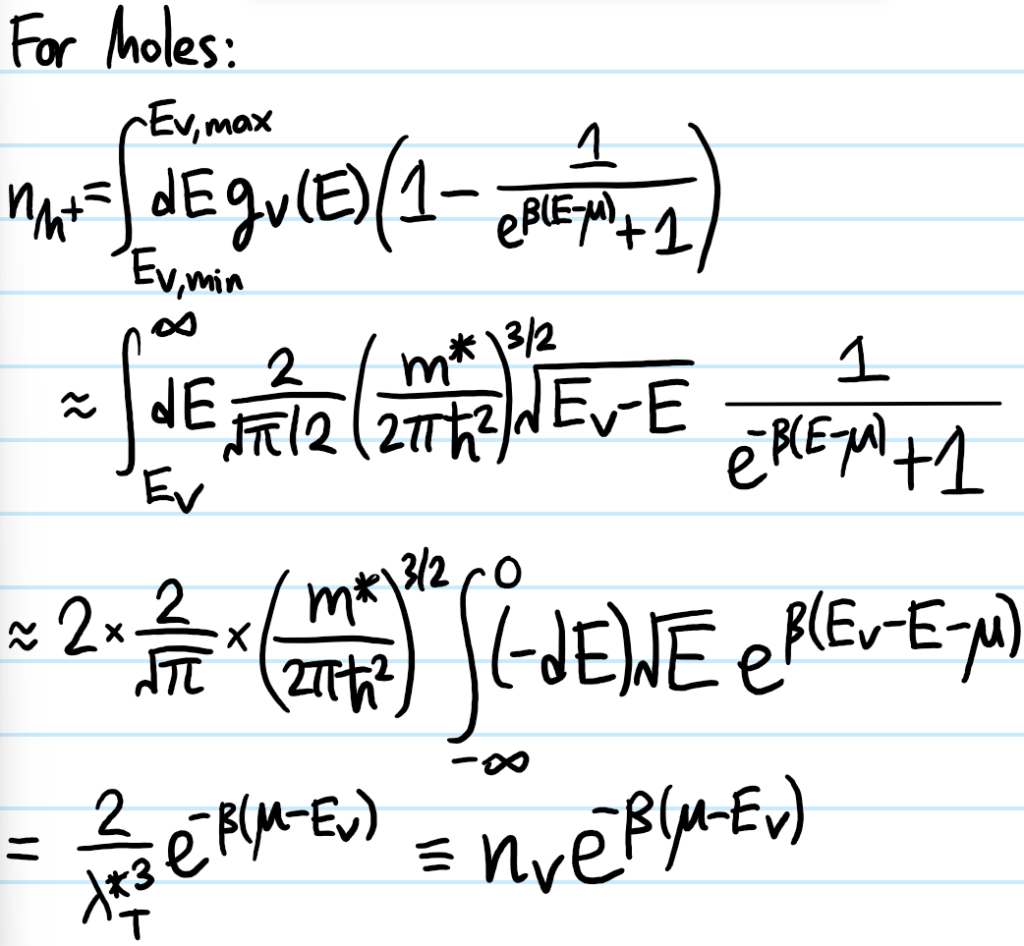 For holes:
n_{h^+} = \int_{E_{v,min}}^{E_{v,max}} dE g_v(E) (1 - \frac{1}{e^{β(E-μ)}+1})
≈ \int_{E_v}^{∞} dE \frac{2}{\sqrt{π}/2} (\frac{m^*}{2πħ^2})^{3/2} \sqrt{E_v-E} \frac{1}{e^{-β(E-μ)}+1}
≈ 2 × \frac{2}{\sqrt{π}} × (\frac{m^*}{2πħ^2})^{3/2} \int_{-∞}^{0} (-dE) \sqrt{E} e^{β(E_v-E-μ)}
= \frac{2}{λ_T^{*3}} e^{-β(μ-E_v)} ≡ n_v e^{-β(μ-E_v)}